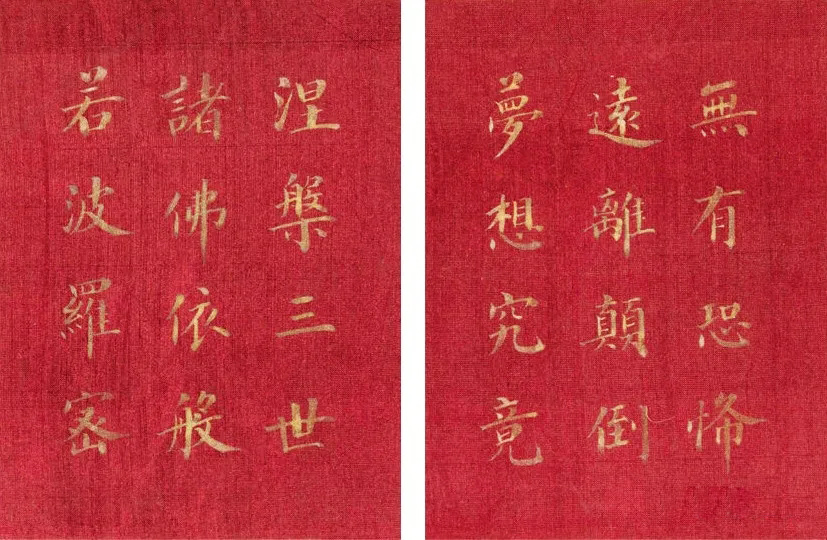 無有恐怖
遠離顛倒
夢想究竟
涅槃三世
諸佛依般
若波羅密